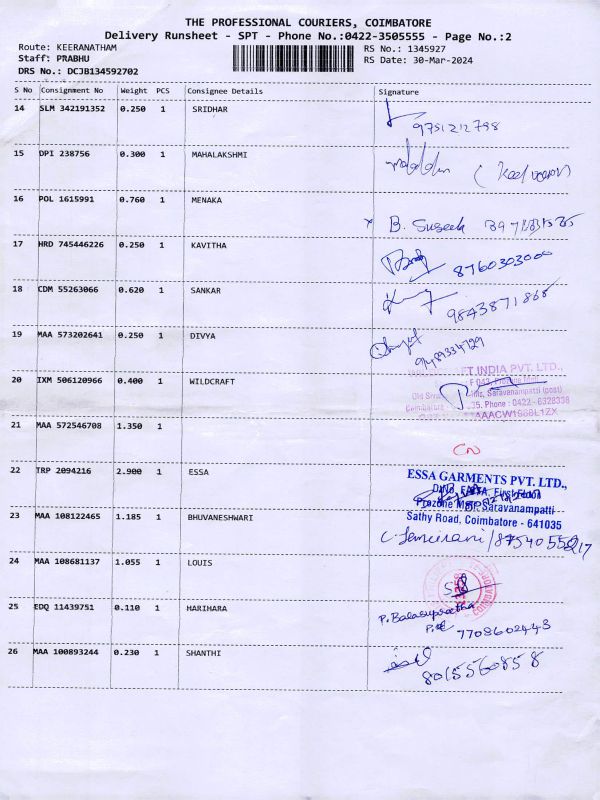 THE PROFESSIONAL COURIERS, COIMBATORE
Delivery Runsheet - SPT - Phone No.:0422-3505555 - Page No.:2
Route: KEERANATHAM RS No.: 1345927
Staff: PRABHU RS Date: 30-Mar-2024
DRS No.: DCJB134592702
S No Consignment No Weight PCS Consignee Details Signature
14 SLM 342191352 0.250 1 SRIDHAR
9751212798
15 DPI 238756 0.300 1 MAHALAKSHMI
16 POL 1615991 0.760 1 MENAKA
B. Suseela
17 HRD 745446226 0.250 1 KAVITHA
8760303000
18 CDM 55263066 0.620 1 SANKAR
9843871868
19 MAA 573202641 0.250 1 DIVYA
9489334729
FT INDIA PVT. LTD.,
20 IXM 506120966 0.400 1 WILDCRAFT
F 043, Prozone Mall
Saravanampatti (post)
Coimbatore 35. Phone : 0422 - 6328338
21 MAA 572546708 1.350 1
CN
22 TRP 2094216 2.900 1 ESSA
ESSA GARMENTS PVT. LTD.,
First Floor
Prozone Mall, Saravanampatti
Sathy Road, Coimbatore - 641035
23 MAA 108122465 1.185 1 BHUVANESHWARI
24 MAA 108681137 1.055 1 LOUIS
25 EDQ 11439751 0.110 1 HARIHARA
P. Balasupratha
7708602443
26 MAA 100893244 0.230 1 SHANTHI
8015560858